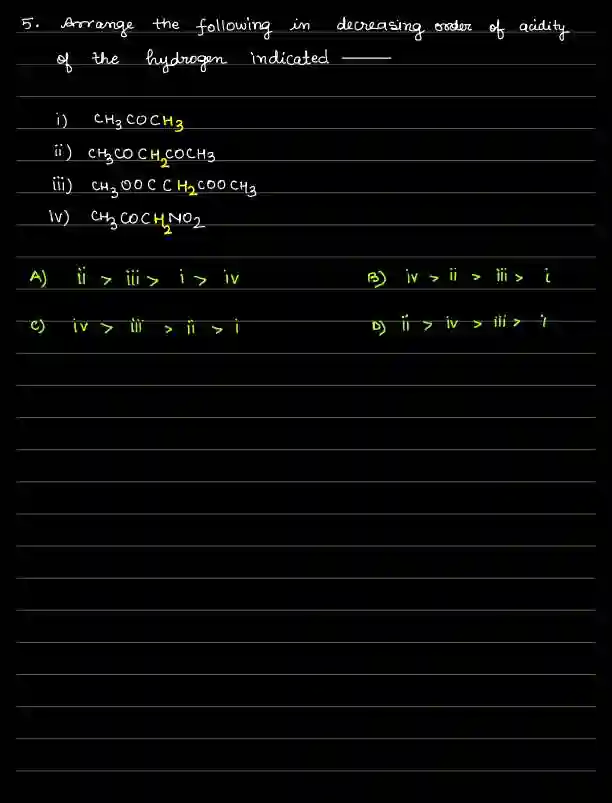 5. Arrange the following in decreasing order of acidity
of the hydrogen indicated ——
i) CH₃COCH₃
ii) CH₃COCH₂COCH₃
iii) CH₃OOCCH₂COOCH₃
iv) CH₃COCH₂NO₂
A) ii > iii > i > iv B) iv > ii > iii > i
C) iv > iii > ii > i D) ii > iv > iii > i